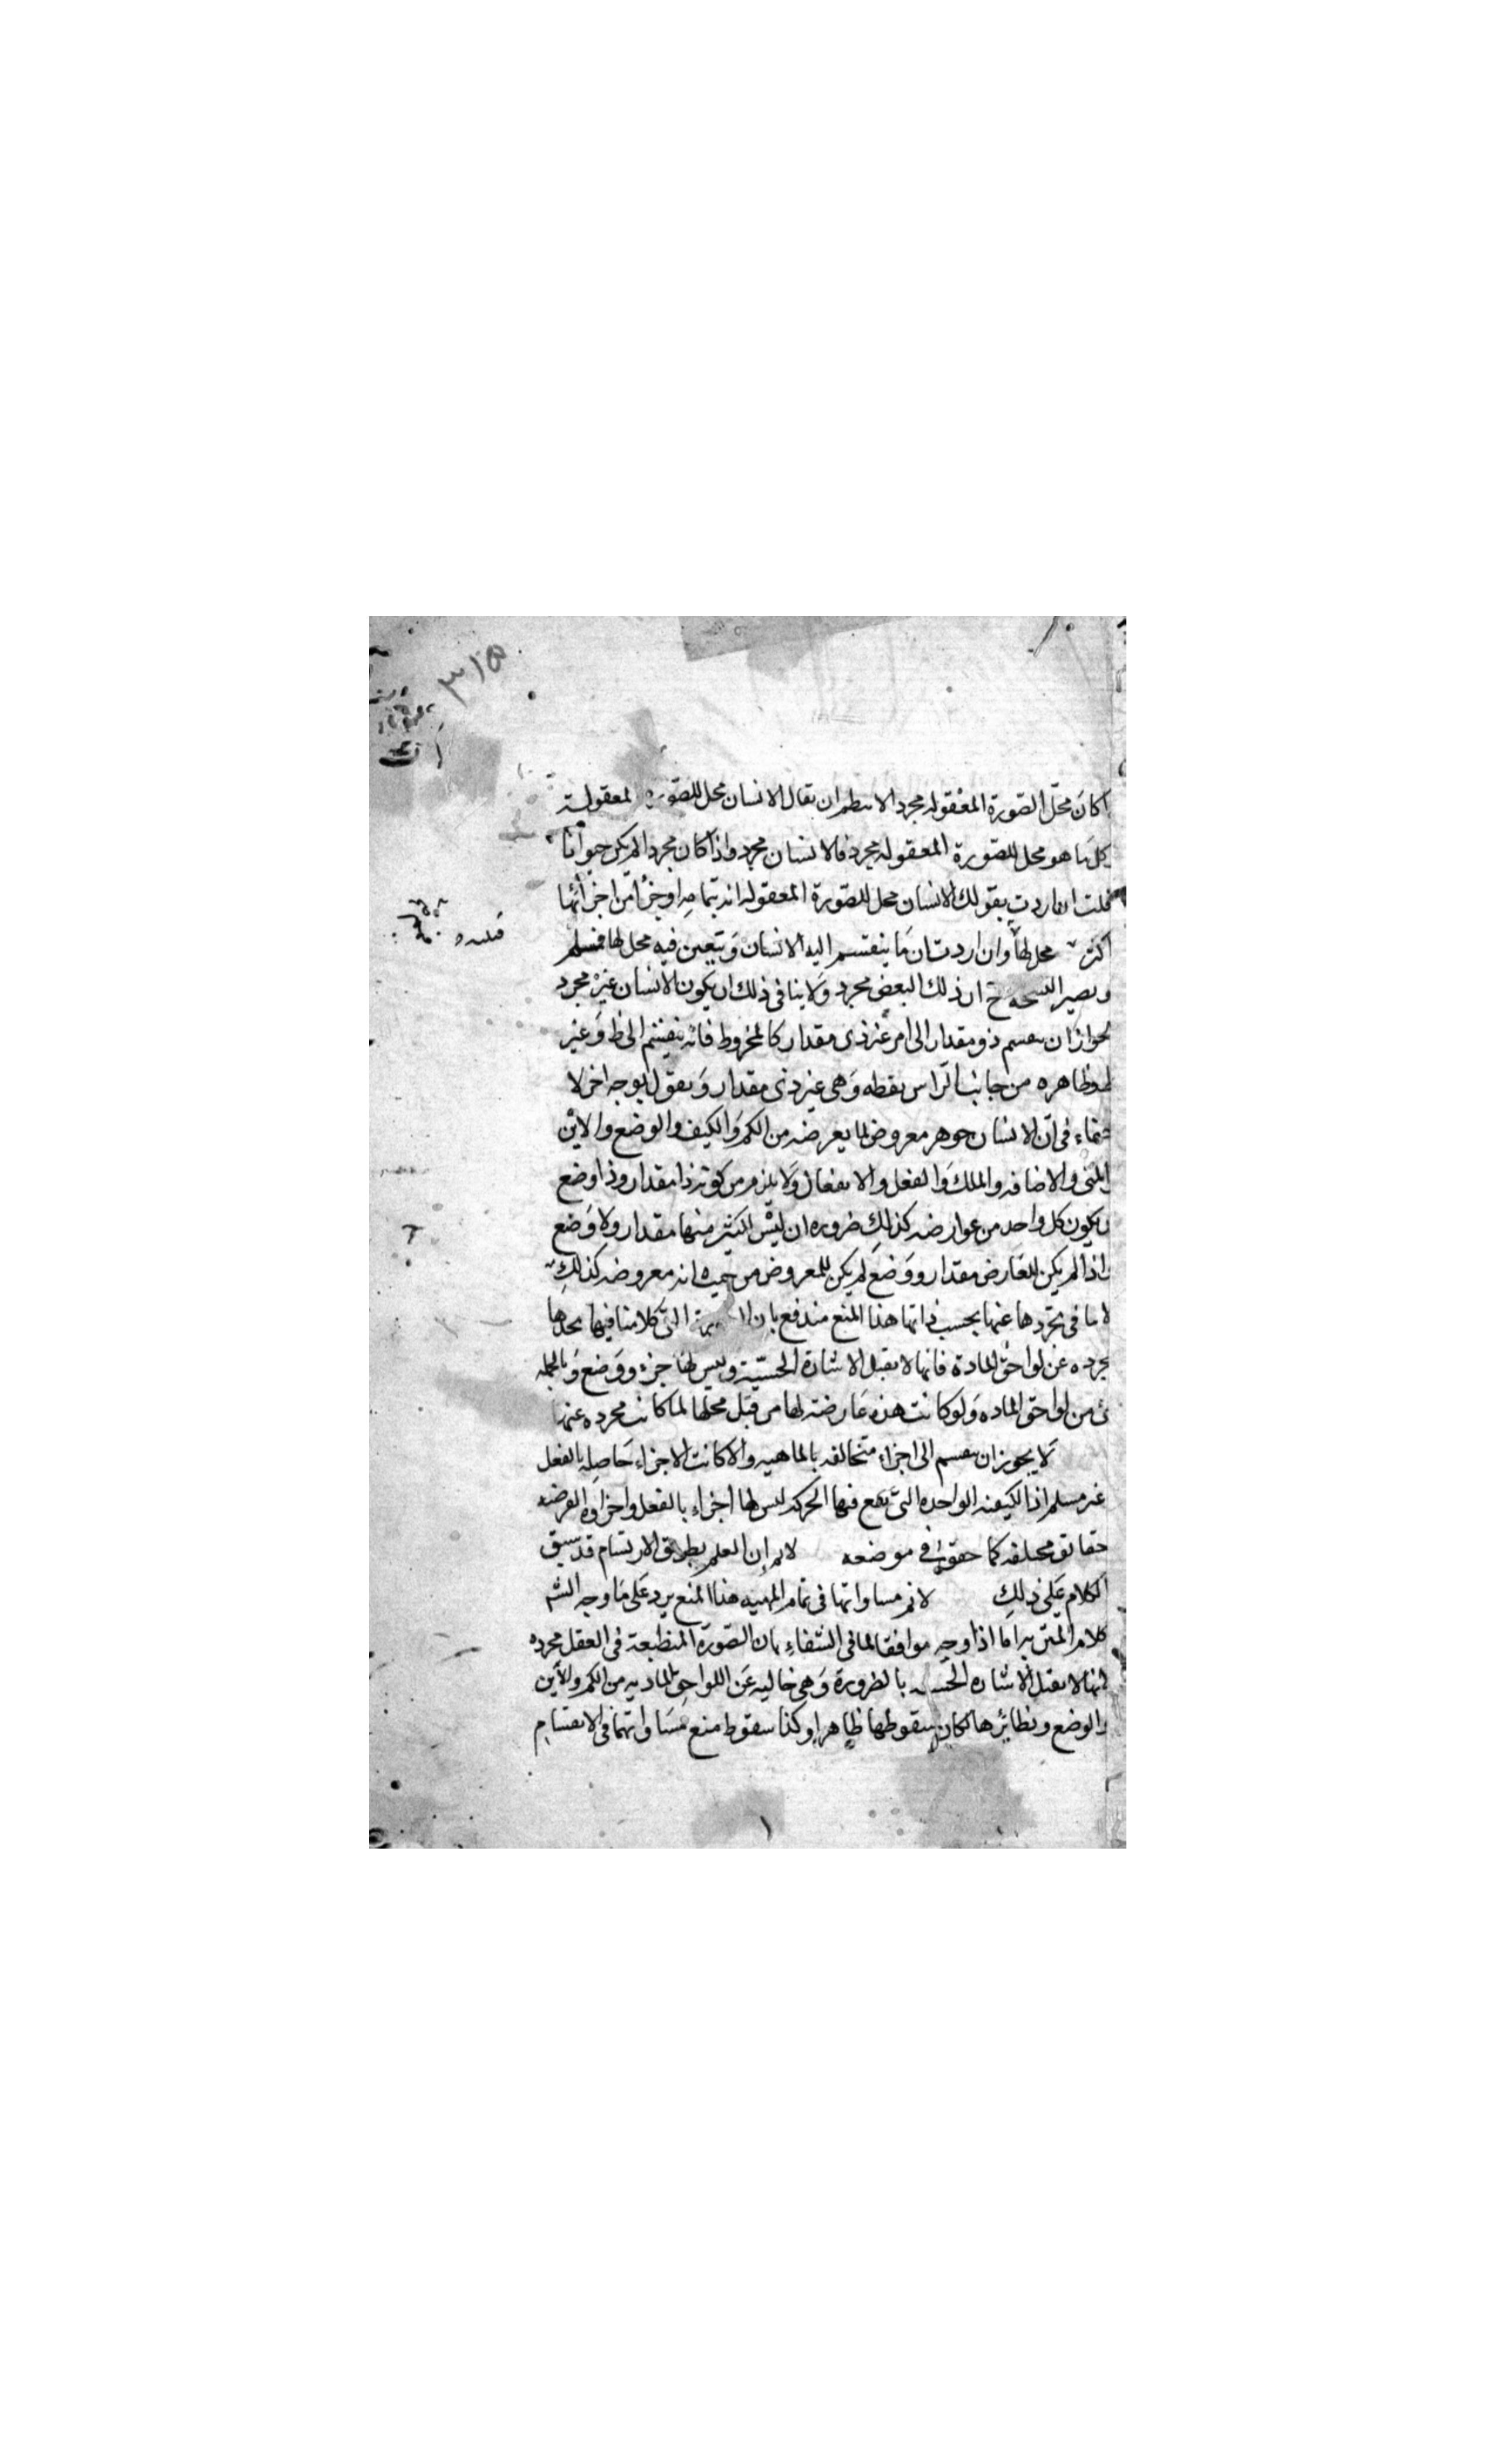 ٣١٥
كان محل الصورة المعقوله مجردا لانتظم ان يقال الانسان محل للصورة المعقولية
كل ما هو محل للصورة المعقوله مجرد فالانسان مجرد واذا كان مجردا لم يكن حيوانا
قلت ان اردت بقولك الانسان محل للصورة المعقوله انه بتمامه او جزأ من اجزائها
محل لها وان اردت ان ما ينقسم اليه الانسان ويتعين فيه محل لها فمسلم
ويصير النتيجة ح ان ذلك البعض مجرد ولا ينافى ذلك ان يكون الانسان غير مجرد
لجواز ان ينقسم ذو مقدار الى امر غير ذى مقدار كالمخروط فانه ينقسم الى خط وغير
ظاهره من جانب الراس نقطه وهى غير ذى مقدار ونقول بوجه اخر لا
خفاء فى ان الانسان جوهر معروض لما يعرضه من الكم والكيف والوضع والاين
والمتى والاضافه والملك والفعل والانفعال ولا يلزم من كونه ذا مقدار وذا وضع
ان يكون كل واحد من عوارضه كذلك ضروره ان ليس لكثير منها مقدار ولا وضع
واذا لم يكن للعارض مقدار ووضع لم يكن للمعروض من حيث انه معروضه كذلك
تجردها عنها بحسب ذاتها هذا المنع مندفع بان التى كلامنا فيها نجدها
مجرده عن لواحق المادة فانها لا تقبل الاشارة الحسية وليس لها جزء ووضع وبالجمله
من لواحق الماده ولو كانت هذه عارضة لها من قبل محلها لما كانت مجرده عنها
لا يجوز ان ينقسم الى اجزاء متخالفه بالماهيه والا كانت الاجزاء حاصله بالفعل
غير مسلم اذ الكيفيه الواحده التى تقع فيها الحركه ليس لها اجزاء بالفعل واجزاؤه الفرضيه
حقائق مختلفه كما فى موضعه لانم ان العلم بطريق الارتسام قد سبق
الكلام على ذلك لانم مساواتها فى تمام المهيه هذا المنع يرد على ما وجه الشم
كلام المتن به اما اذا وجه موافقا لما فى الشفاء بان الصورة المنطبعة فى العقل مجرده
لانها لا تقبل الاشاره الحسيه بالضرورة وهى خاليه عن اللواحق الماديه من الكم والاين
والوضع ونظائرها كان سقوطها ظاهرا وكذا سقوط منع مساواتهما فى الانقسام